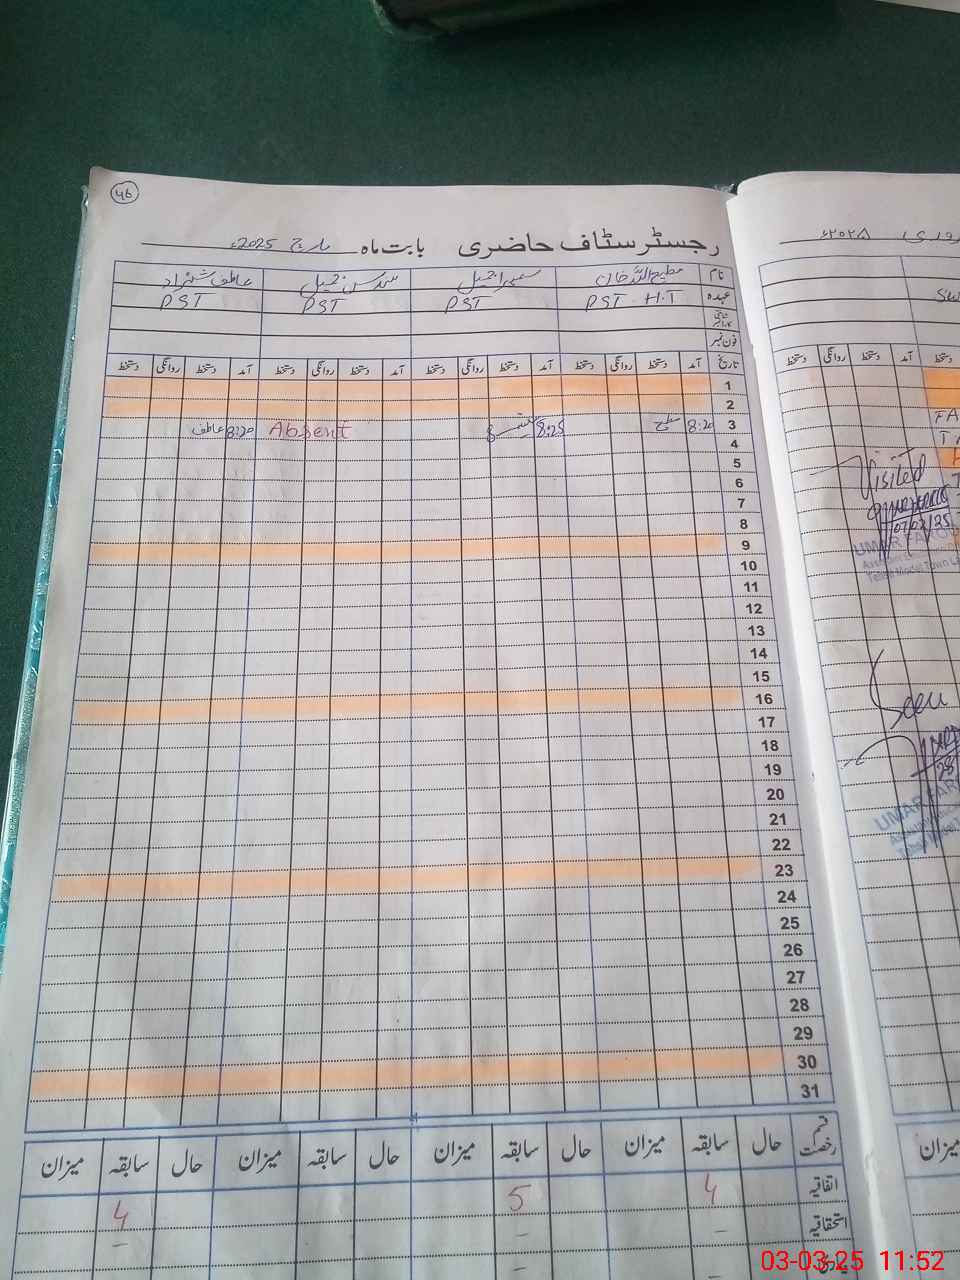 46
رجسٹر سٹاف حاضری بابت ماہ مارچ 2025ء
نام مطیع اللہ خان سمیرا جمیل سندس جمیل عاطف شہزاد
عہدہ PST H.T PST PST PST
شناختی کارڈ نمبر
فون نمبر
تاریخ آمد دستخط روانگی دستخط آمد دستخط روانگی دستخط آمد دستخط روانگی دستخط آمد دستخط روانگی دستخط
1
2
3 8:20 مطیع 8:25 Absent 8:20 عاطف
4
5
6
7
8
9
10
11
12
13
14
15
16
17
18
19
20
21
22
23
24
25
26
27
28
29
30
31
قسم رخصت حال سابقہ میزان حال سابقہ میزان حال سابقہ میزان حال سابقہ میزان
اتفاقیہ 4 5 4
استحقاقیہ – – –
۲۰۲۵ء
دستخط روانگی دستخط آمد
Visited
07/02/25
UMAR FAROO
Tehsil Model Town L
Seen
28
UMAR FAR
میزان
03-03-25 11:52